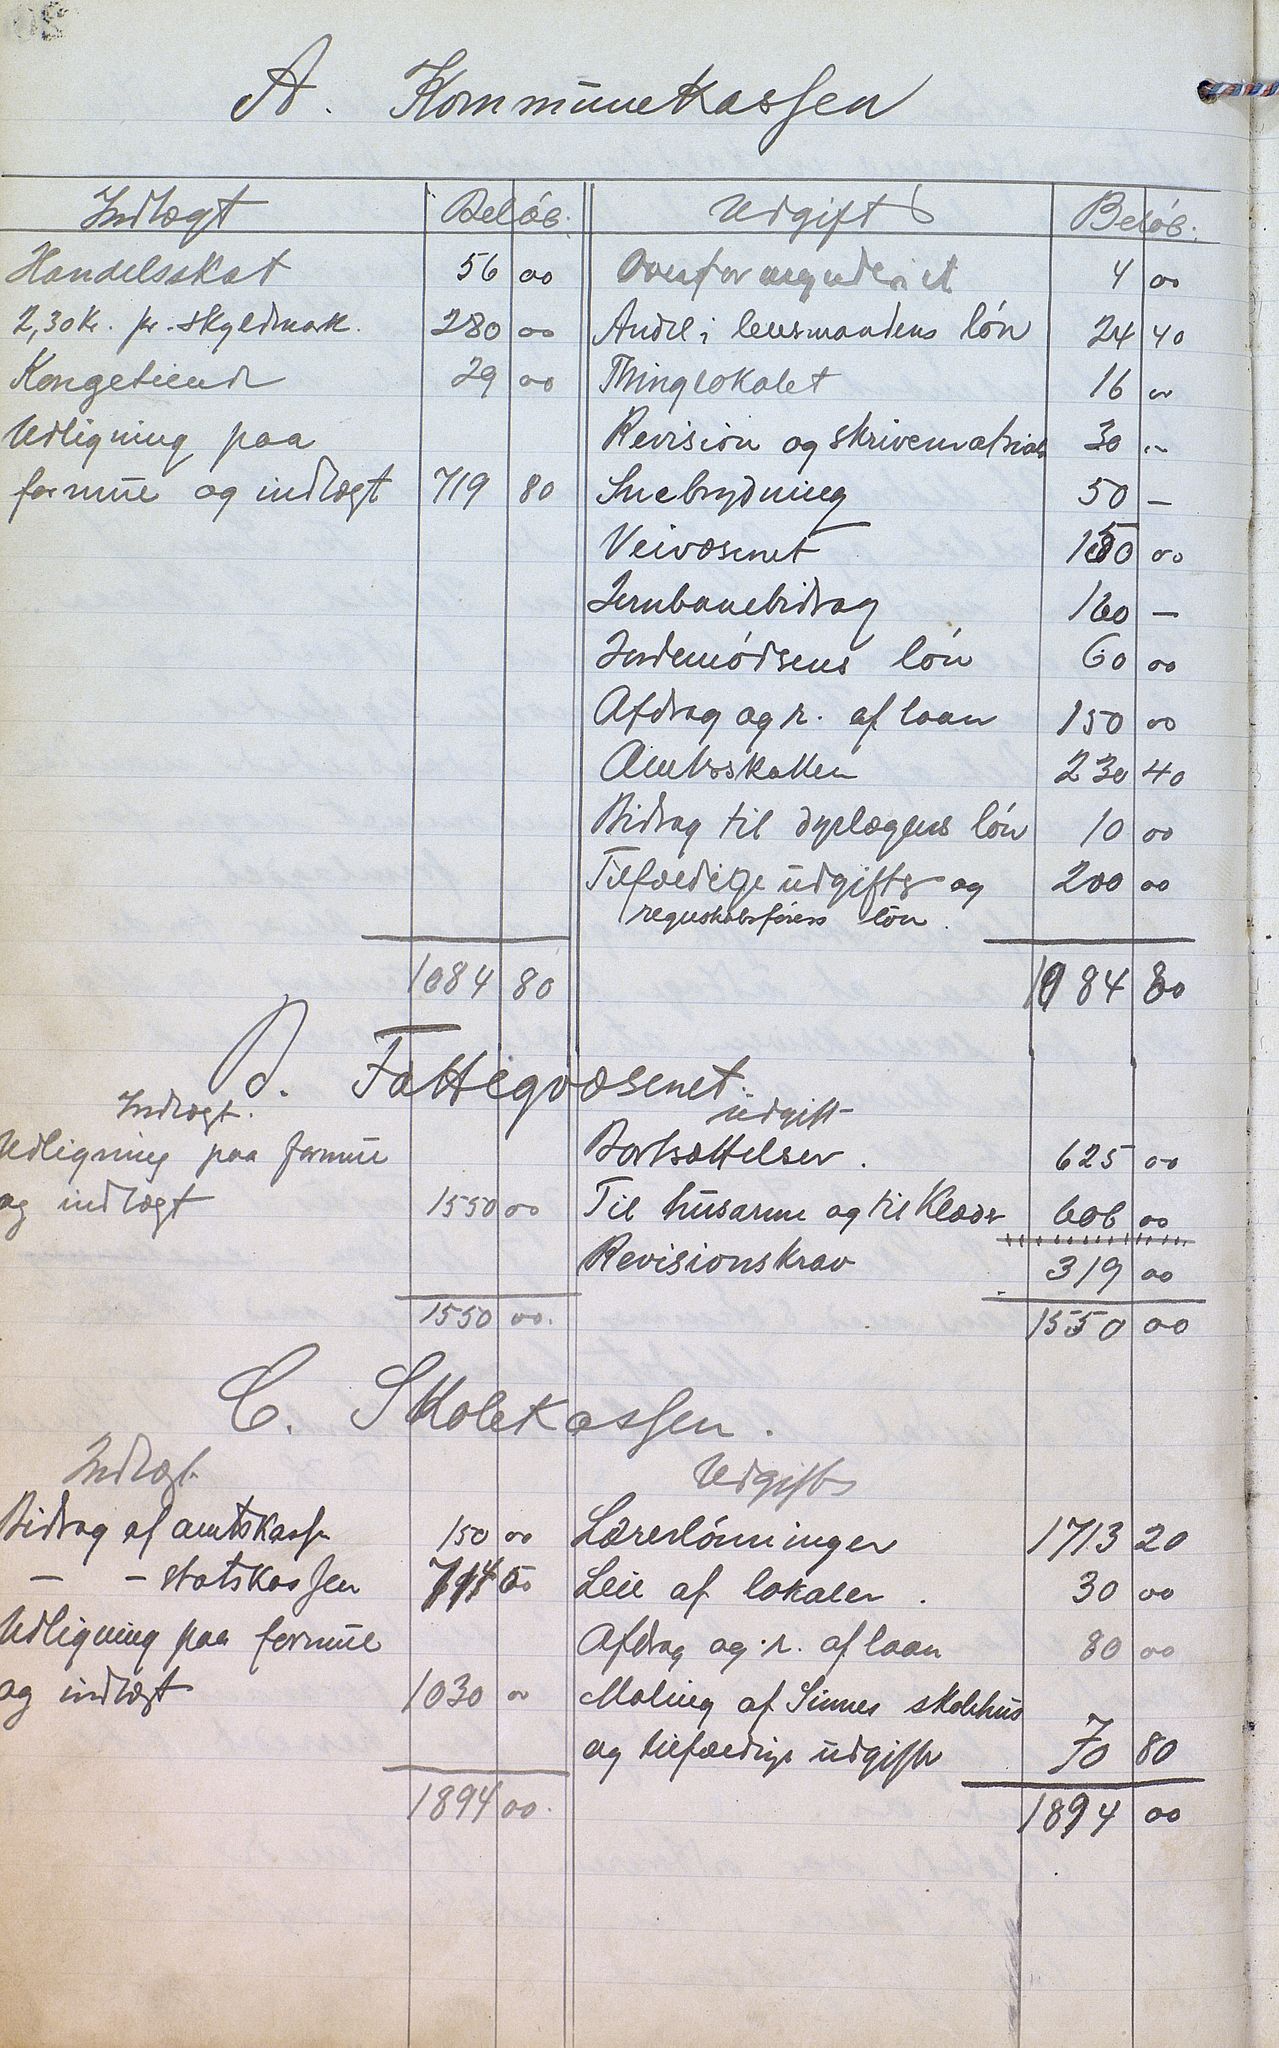 A. Kommunekassen
Indtægt Beløb. Udgift Beløb.
Handelsskat 56 00 Overformynderiet 4 00
2,30 kr. pr. skyldmark. 280 00 Andel i lensmandens løn 24 40
Kongetiende 29 00 Thinglokalet 16 00
Udligning paa Revision og skrivematrials 30 00
formue og indtægt 719 80 Snebrydning 50 —
Veivæsenet 150 00
Jernbanebidrag 160 —
Jordemødrens løn 60 00
Afdrag og r. af laan 150 00
Amtsskatten 230 40
Bidrag til dyrlægens løn 10 00
Tilfældige udgifter og 200 00
regnskabsførers løn.
1084 80 1084 80
B. Fattigvæsenet.
Indtægt. Udgift
Udligning paa formue Bortsættelser. 625 00
og indtægt 1550 00 Til husarme og til Klæder 606 00
Revisionskrav 319 00
1550 00. 1550 00
C. Skolekassen.
Indtægt Udgifter
Bidrag af amtskassen 150 00 Lærerlønninger 1713 20
— — statskassen 714 00 Leie af lokaler. 30 00
Udligning paa formue Afdrag og r. af laan 80 00
og indtægt 1030 00 Maling af Sinnes skolehus
og tilfældige udgifter 70 80
1894 00. 1894 00